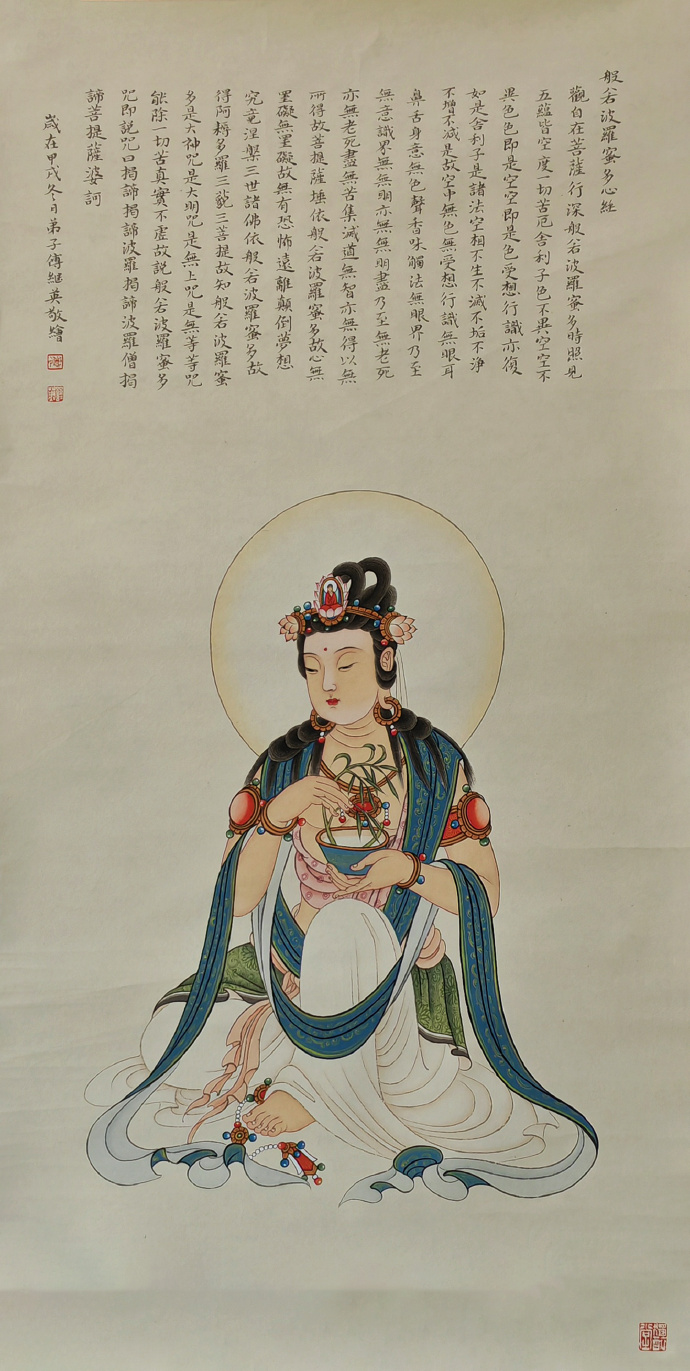 般若波羅蜜多心經
觀自在菩薩行深般若波羅蜜多時照見
五蘊皆空度一切苦厄舍利子色不異空空不
異色色即是空空即是色受想行識亦復
如是舍利子是諸法空相不生不滅不垢不淨
不增不減是故空中無色無受想行識無眼耳
鼻舌身意無色聲香味觸法無眼界乃至
無意識界無無明亦無無明盡乃至無老死
亦無老死盡無苦集滅道無智亦無得以無
所得故菩提薩埵依般若波羅蜜多故心無
罣礙無罣礙故無有恐怖遠離顛倒夢想
究竟涅槃三世諸佛依般若波羅蜜多故
得阿耨多羅三藐三菩提故知般若波羅蜜
多是大神咒是大明咒是無上咒是無等等咒
能除一切苦真實不虛故說般若波羅蜜多
咒即說咒曰揭諦揭諦波羅揭諦波羅僧揭
諦菩提薩婆訶
歲在甲戌冬月弟子傅継英敬繪